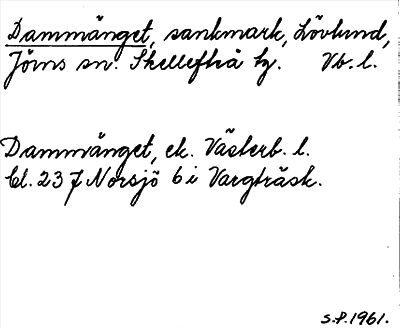 Dammänget, sankmark, Lövlund,
Jörns sn. Skellefteå tg. Vb. l.
Dammänget, ek. Västerb. l.
Bl. 237 Norsjö 6 i Vargträsk.
S.P. 1961.